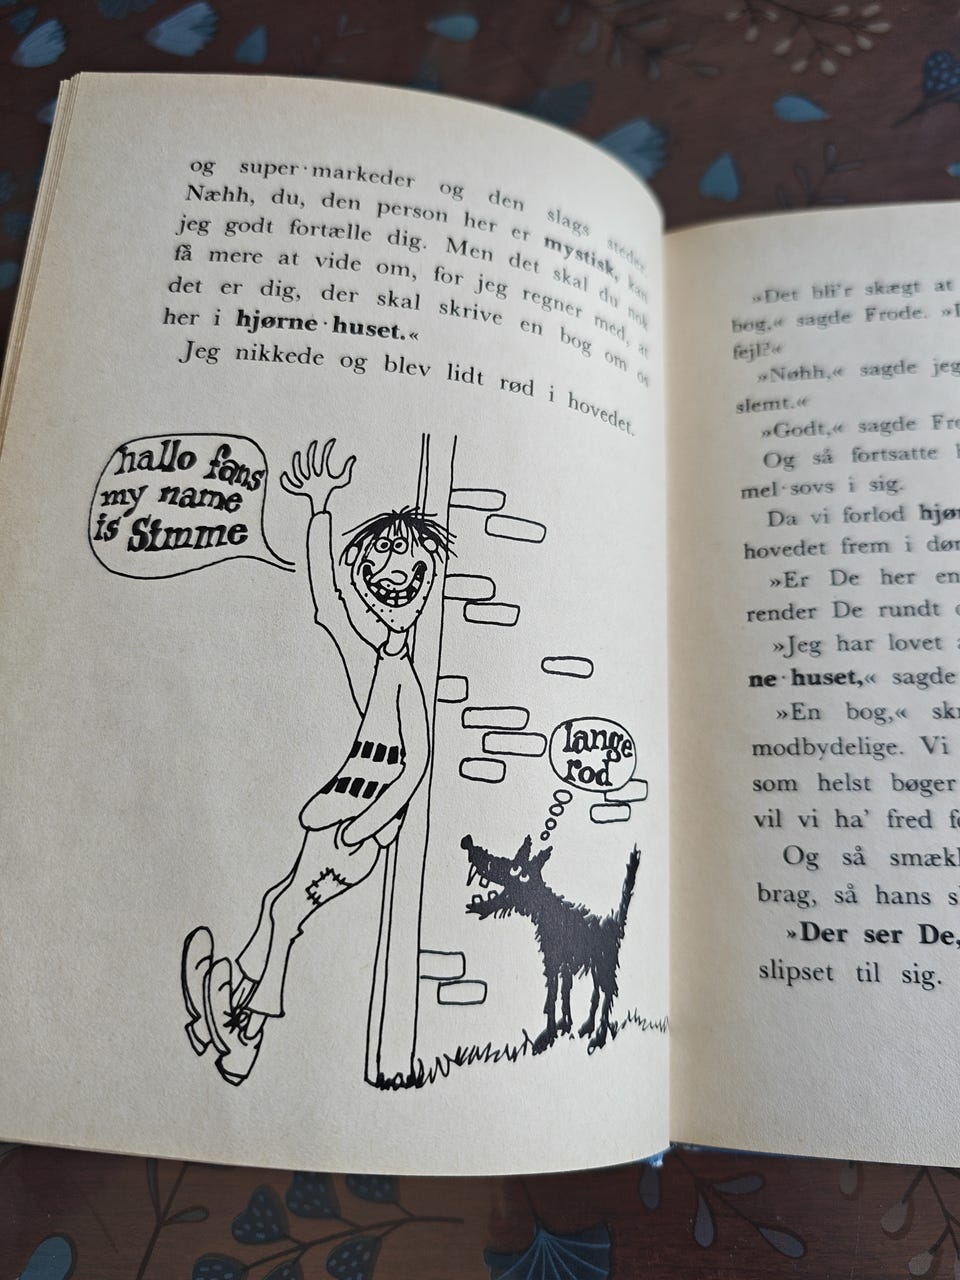 og super·markeder og den slags steder.
Næhh, du, den person her er mystisk, kan
jeg godt fortælle dig. Men det skal du nok
få mere at vide om, for jeg regner med, at
det er dig, der skal skrive en bog om os
her i hjørne·huset.«
Jeg nikkede og blev lidt rød i hovedet.
hallo fans
my name
is Simme
lange
rod
»Det bli'r skægt at
bog,« sagde Frode.
fejl?«
»Nøhh,« sagde jeg
slemt.«
»Godt,« sagde
Og så fortsatte
mel·sovs i sig.
Da vi forlod
hovedet frem i
»Er De her
render De rundt
»Jeg har lovet
ne·huset,« sagde
»En bog,«
modbydelige. Vi
som helst bøger
vil vi ha' fred
Og så
brag, så hans
»Der ser De,
slipset til sig.